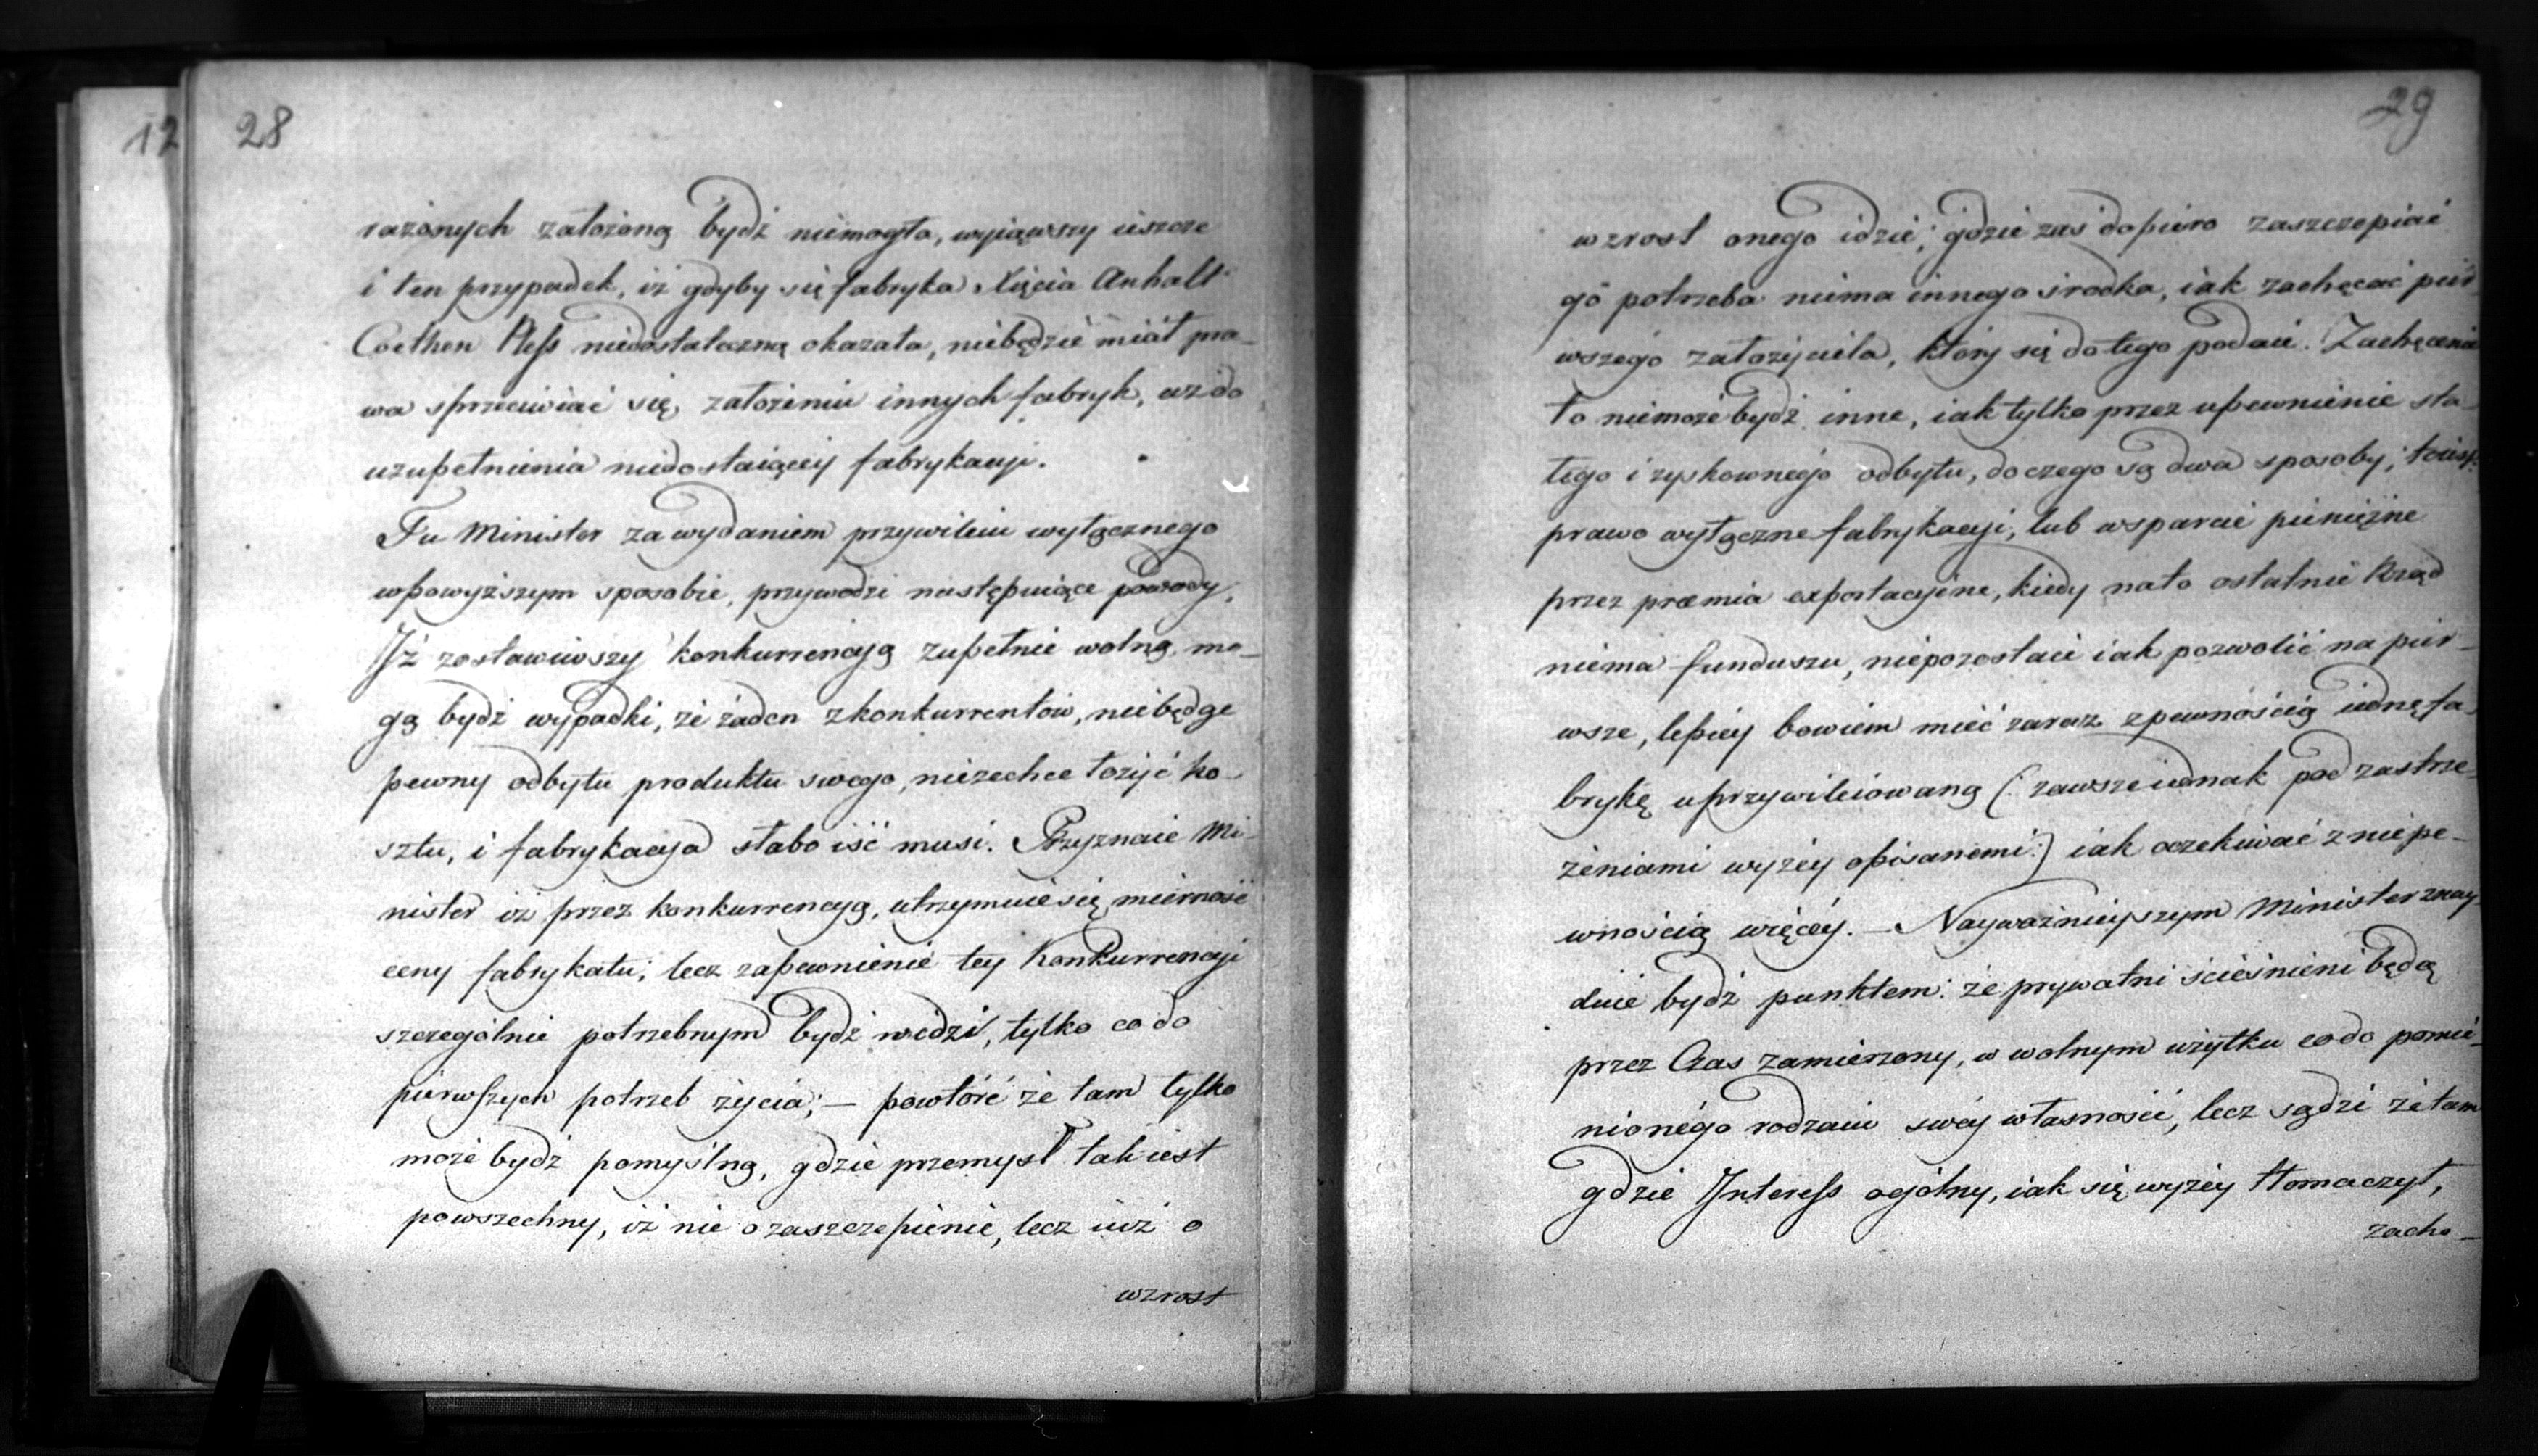 12
28
rażonych założoną bydź niemogła, wyiąwszy ieszcze
i ten przypadek, iż gdyby się fabryka Xięcia Anhalt
Coethen Pless niedostateczną okazała, niebędzie miał pra-
wa sprzeciwiać się, założeniu innych fabryk, aż do
uzupełnienia niedostaiącey fabrykacyi.
Tu Minister za wydaniem przywileiu wyłącznego
wpowyższym sposobie, przywodzi następuiące powody,
Iż zostawiwszy konkurrencyą zupełnie wolną, mo-
gą bydź wypadki, że żaden zkonkurrentów, niebędąc
pewny odbytu produktu swego, niezechce łożyć ko-
sztu, i fabrykacya słabo iść musi. Przyznaie Mi-
nister iż przez konkurrencyą, utrzymuie się mierność
ceny fabrykatu; lecz zapewnienie tey Konkurrencyi
szczególnie potrzebnym bydź widzi, tylko co do
pierwszych potrzeb życia; — powtóré że tam tylko
może bydź pomyślną, gdzie przemysł tak iest
powszechny, iż nie o zaszczepienie, lecz iuż o
wzrost
29
wzrost onego idzie; gdzie zaś dopiero zaszczepiać
go potrzeba niema innego srodka, iak zachęcać pier-
wszego założyciela, który się do tego podaie. Zachęcenie
to niemoże bydź inne, iak tylko przez upewnienie sta-
łego i zyskownego odbytu, do czego są dwa sposoby; toiest:
prawo wyłączne fabrykacyi, lub wsparcie pieniężne
przez præmia exportacyine, kiedy nato ostatnie Rząd
niema funduszu, niepozostaie iak pozwolić na pier-
wsze, lepiey bowiem mieć zaraz zpewnością iednę fa-
brykę uprzywileiowaną (: zawsze iednak pod zastrze-
żeniami wyżey opisanemi:) iak oczekiwać z niepe-
wnością więcéy. — Nayważnieyszym Minister znay-
duie bydź punktem: że prywatni ścieśnieni będą
przez Czas zamierzony, w wolnym użytku codo pomie-
nionégo rodzaiu swéy własności, lecz sądzi że tam
gdzie Interess ogólny, iak się wyżéy tłomaczył,
zacho-